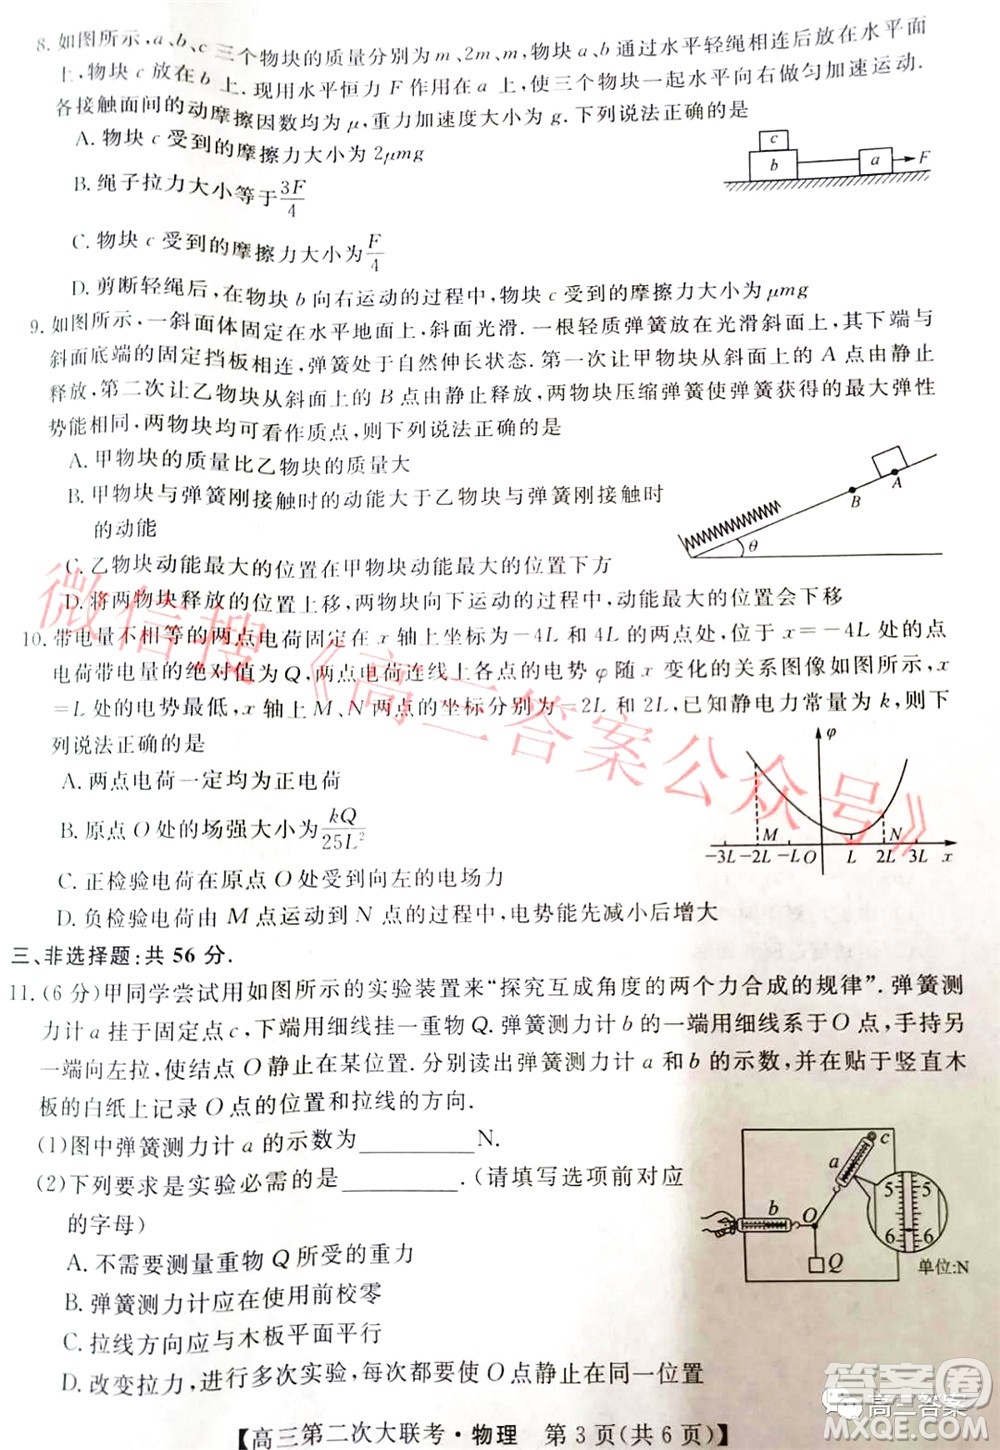 8. 如图所示,a、b、c 三个物块的质量分别为 m、2m、m,物块 a、b 通过水平轻绳相连后放在水平面
上,物块 c 放在 b 上.现用水平恒力 F 作用在 a 上,使三个物块一起水平向右做匀加速运动.
各接触面间的动摩擦因数均为 μ,重力加速度大小为 g.下列说法正确的是
A. 物块 c 受到的摩擦力大小为 2μmg
B. 绳子拉力大小等于 3F/4
C. 物块 c 受到的摩擦力大小为 F/4
D. 剪断轻绳后,在物块 b 向右运动的过程中,物块 c 受到的摩擦力大小为 μmg
c
b
a
F
9. 如图所示,一斜面体固定在水平地面上,斜面光滑.一根轻质弹簧放在光滑斜面上,其下端与
斜面底端的固定挡板相连,弹簧处于自然伸长状态.第一次让甲物块从斜面上的 A 点由静止
释放,第二次让乙物块从斜面上的 B 点由静止释放,两物块压缩弹簧使弹簧获得的最大弹性
势能相同,两物块均可看作质点,则下列说法正确的是
A. 甲物块的质量比乙物块的质量大
B. 甲物块与弹簧刚接触时的动能大于乙物块与弹簧刚接触时
的动能
C. 乙物块动能最大的位置在甲物块动能最大的位置下方
D. 将两物块释放的位置上移,两物块向下运动的过程中,动能最大的位置会下移
A
B
θ
10. 带电量不相等的两点电荷固定在 x 轴上坐标为-4L 和 4L 的两点处,位于 x=-4L 处的点
电荷带电量的绝对值为 Q,两点电荷连线上各点的电势 φ 随 x 变化的关系图像如图所示,x
=L 处的电势最低,x 轴上 M、N 两点的坐标分别为-2L 和 2L,已知静电力常量为 k,则下
列说法正确的是
A. 两点电荷一定均为正电荷
B. 原点 O 处的场强大小为 kQ/25L²
C. 正检验电荷在原点 O 处受到向左的电场力
D. 负检验电荷由 M 点运动到 N 点的过程中,电势能先减小后增大
φ
M
N
-3L -2L -L O L 2L 3L x
三、非选择题:共 56 分.
11. (6 分)甲同学尝试用如图所示的实验装置来“探究互成角度的两个力合成的规律”.弹簧测
力计 a 挂于固定点 c,下端用细线挂一重物 Q.弹簧测力计 b 的一端用细线系于 O 点,手持另
一端向左拉,使结点 O 静止在某位置.分别读出弹簧测力计 a 和 b 的示数,并在贴于竖直木
板的白纸上记录 O 点的位置和拉线的方向.
(1)图中弹簧测力计 a 的示数为________N.
(2)下列要求是实验必需的是________(请填写选项前对应
的字母)
A. 不需要测量重物 Q 所受的重力
B. 弹簧测力计应在使用前校零
C. 拉线方向应与木板平面平行
D. 改变拉力,进行多次实验,每次都要使 O 点静止在同一位置
c
a
b
O
Q
5 5
6 6
单位:N
微信搜《高三答案公众号》
答案圈
高三答案
【高三第二次大联考·物理 第 3 页(共 6 页)】